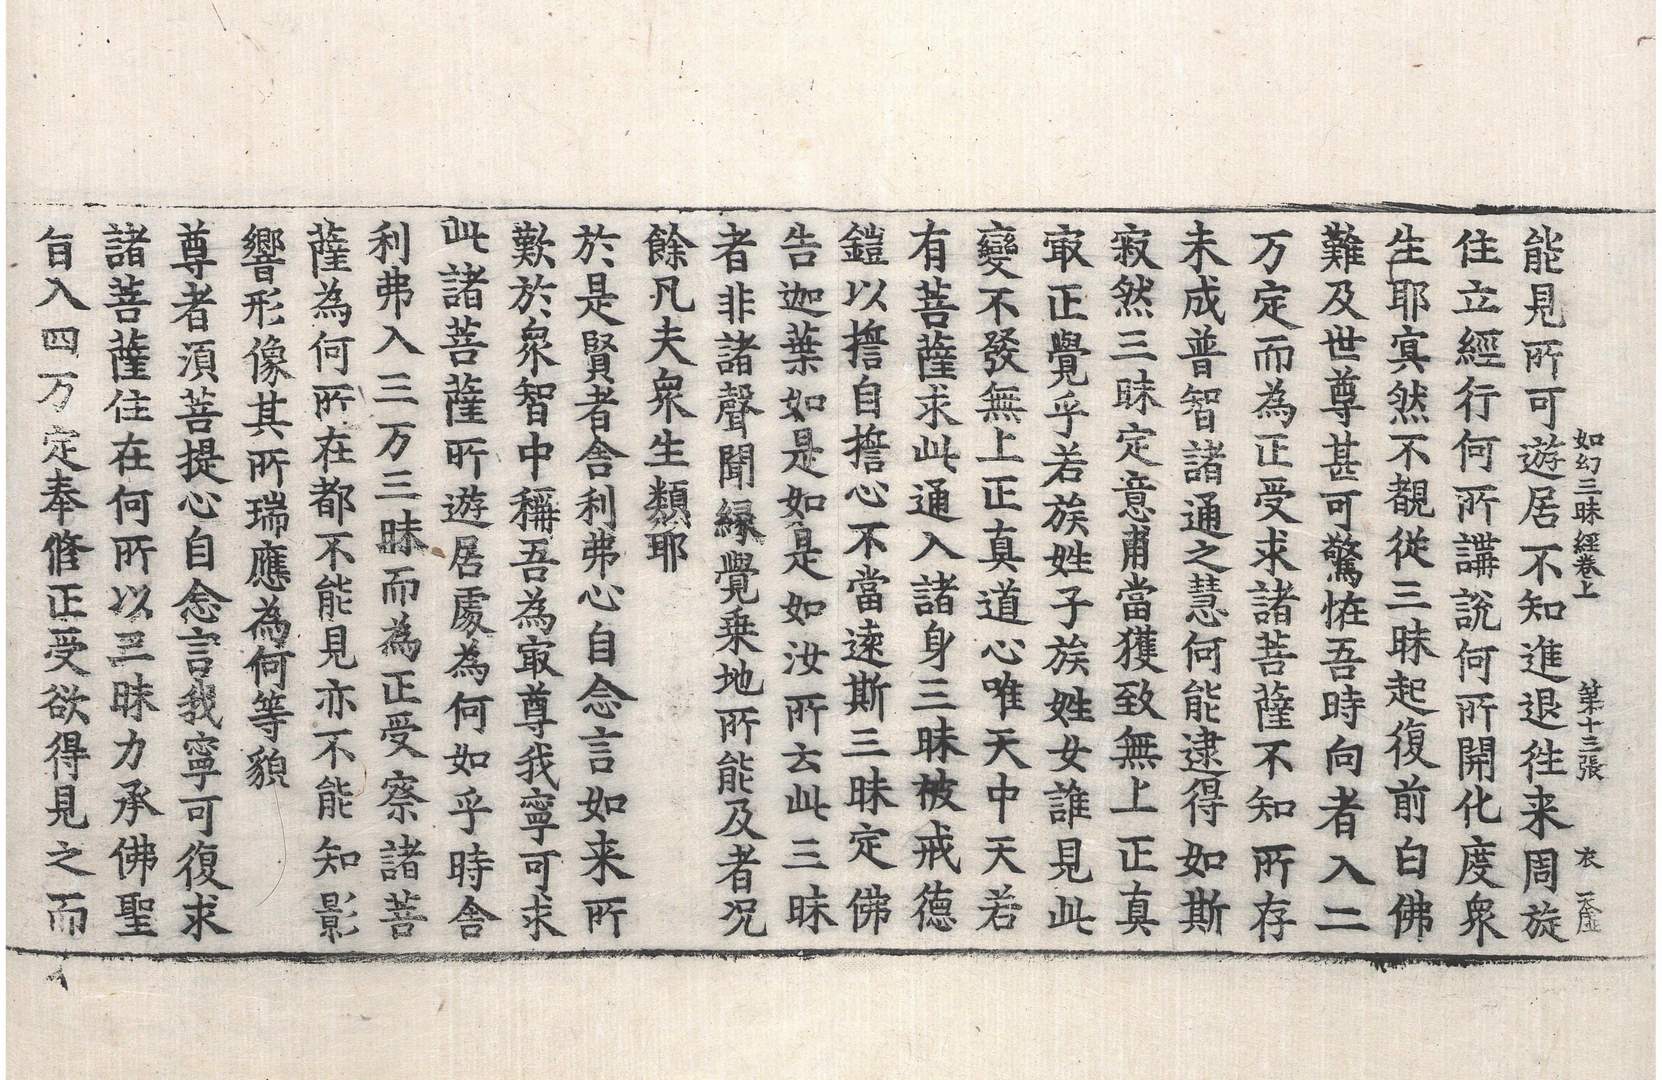 如幻三昧經卷上 第十三張 衣 天皿
能見所可遊居不知進退徃来周旋
住立經行何所講說何所開化度衆
生耶寘然不覩從三昧起復前白佛
難及世尊甚可驚恠吾時向者入二
万定而為正受求諸菩薩不知所存
未成普智諸通之慧何能逮得如斯
寂然三昧定意甫當獲致無上正真
㝡正覺乎若族姓子族姓女誰見此
變不發無上正真道心唯天中天若
有菩薩求此通入諸身三昧被戒德
鎧以擔自擔心不當遠斯三昧定佛
告迦葉如是如是如汝所云此三昧
者非諸聲聞緣覺乗地所能及者况
餘凡夫衆生類耶
於是賢者舎利弗心自念言如来所
歎於衆智中稱吾為㝡尊我寧可求
此諸菩薩所遊居處為何如乎時舎
利弗入三万三昧而為正受察諸菩
薩為何所在都不能見亦不能知影
響形像其所瑞應為何等貌
尊者湏菩提心自念言我寧可復求
諸菩薩住在何所以三昧力承佛聖
旨入四万定奉修正受欲得見之而